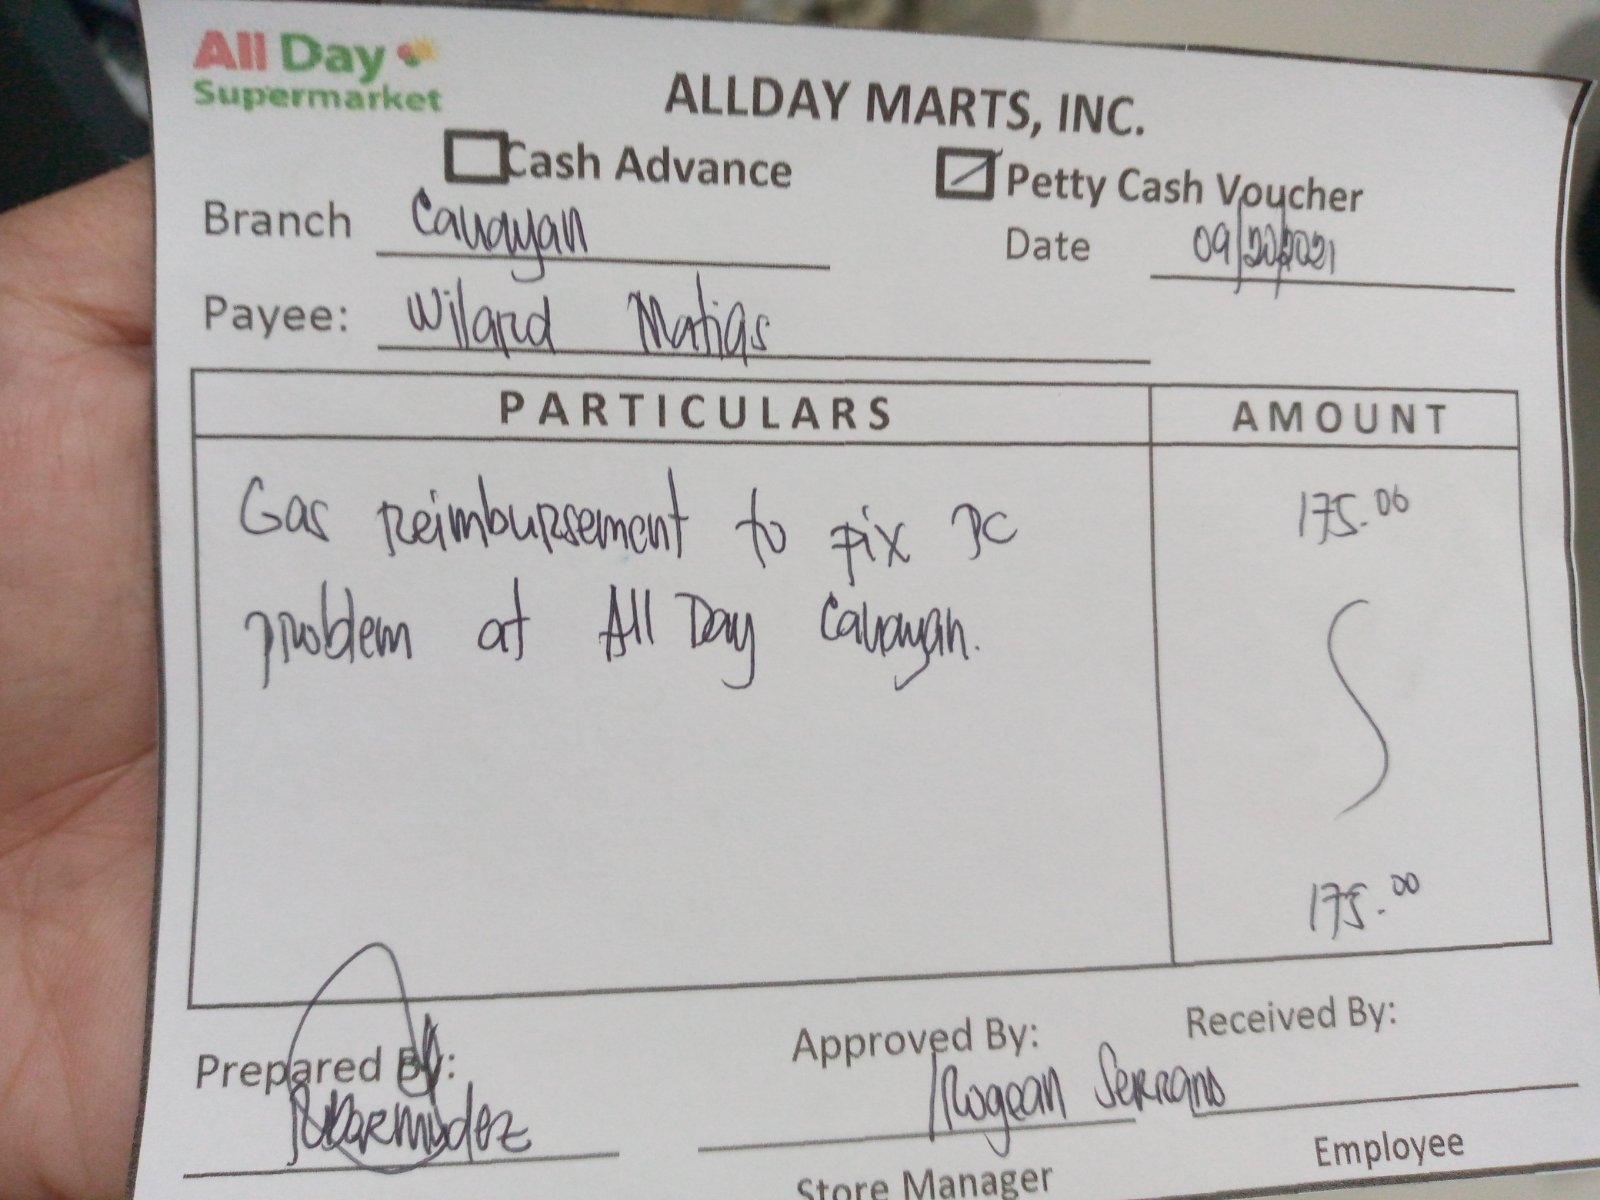 All Day
Supermarket
ALLDAY MARTS, INC.
Cash Advance
Petty Cash Voucher
Branch Cauayan
Date 09/20/2021
Payee: Wilard Matias
PARTICULARS AMOUNT
Gas reimbursement to fix PC 175.00
problem at All Day Cauayan.
175.00
Prepared By: Approved By: Received By:
Rogean Serrano
Store Manager
Employee